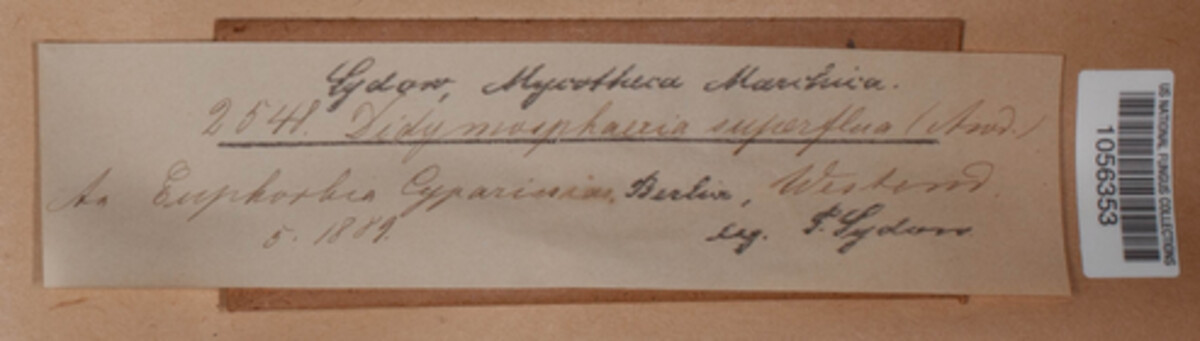 Sydow, Mycotheca Marchica.
2548. Didymosphaeria superflua (Awd.)
An Euphorbia Cyparissias. Berlin, Westend.
5. 1889. leg. P. Sydow.
US NATIONAL FUNGUS COLLECTIONS
1056353